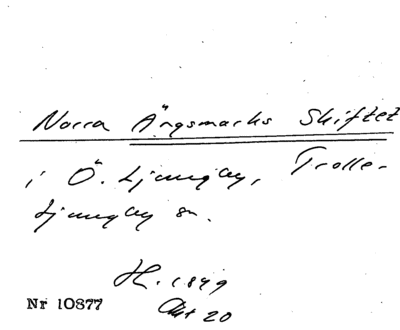 Norra Ängsmarks Skiftet
i Ö. Ljungby, Trolle-
Ljungby sn.
H. 1849
Akt 20
Nr 10877